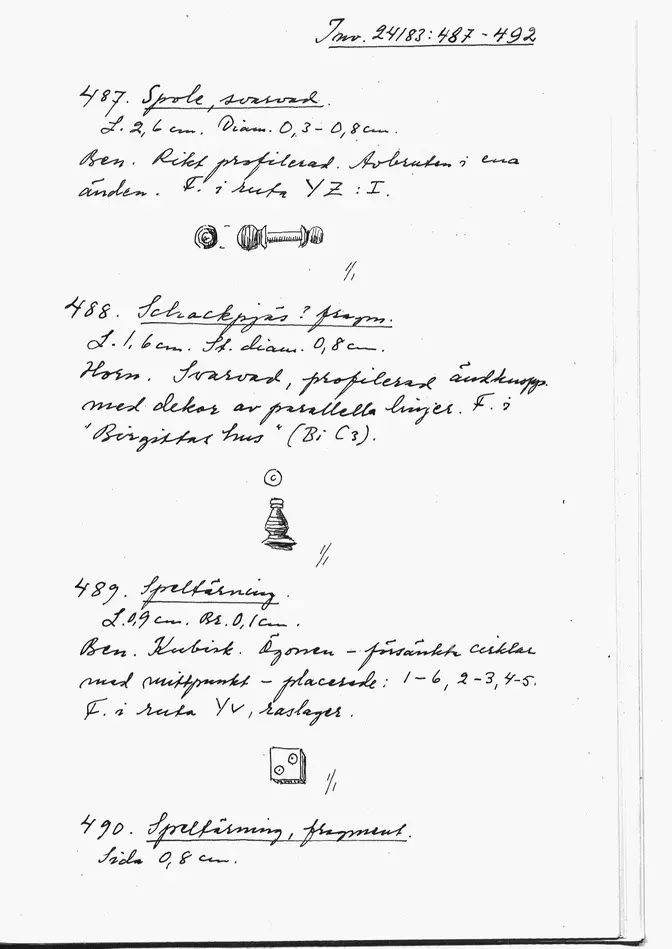 Inv. 24183:487-492
487. Spole, svarvad.
L. 2,6 cm. Diam. 0,3-0,8 cm.
Ben. Rikt profilerad. Avbruten i ena
änden. F. i ruta YZ:I.
1/1
488. Schackpjäs? fragm.
L. 1,6 cm. St. diam. 0,8 cm.
Horn. Svarvad, profilerad ändknopp
med dekor av parallella linjer. F. i
"Birgittas hus" (Bi C3).
1/1
489. Speltärning.
L. 0,9 cm. Br. 0,1 cm.
Ben. Kubisk. Ögonen - försänkta cirklar
med mittpunkt - placerade: 1-6, 2-3, 4-5.
F. i ruta YV, raslager.
1/1
490. Speltärning, fragment.
Sida 0,8 cm.